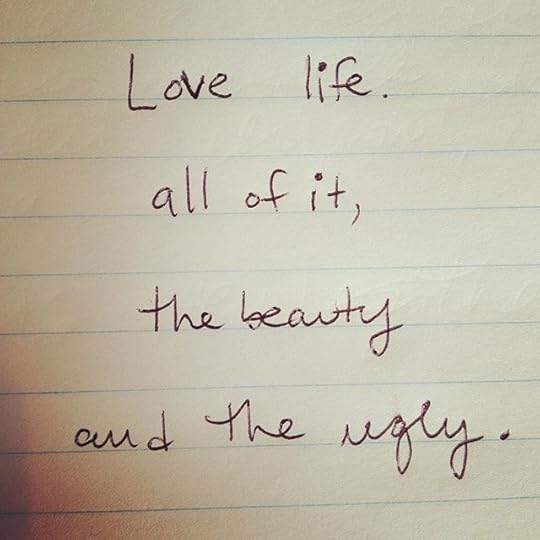 Love life.
all of it,
the beauty
and the ugly.